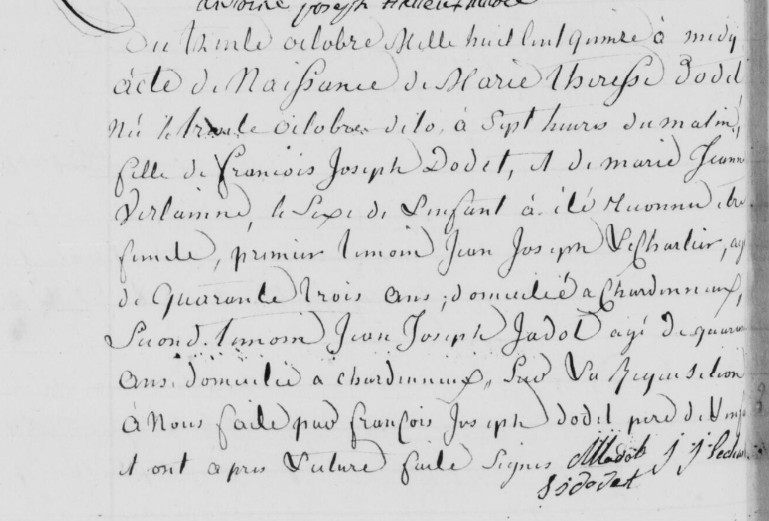 antoine joseph
Du trente octobre Mille huit Cent quinze à midy
acte de Naissance de Marie theresse Dodet
Né le trente octobre dito, à Sept heures du matin,
fille de francois Joseph Dodet, et de marie Jeanne
Verlainne, le Sexe de L'enfant à été reconnu être
femele, premier temoin Jean Joseph LeCharlier, agé
de Quarante trois ans, domicilié a Chardenneux,
Second temoin Jean Joseph Jadot agé de quarante
ans domicilié a chardenneux, Sur La Requisition
à Nous faite par françois Joseph dodet pere de L'enfant
et ont apres Lecture faite Signes JJ Lechar
dodet